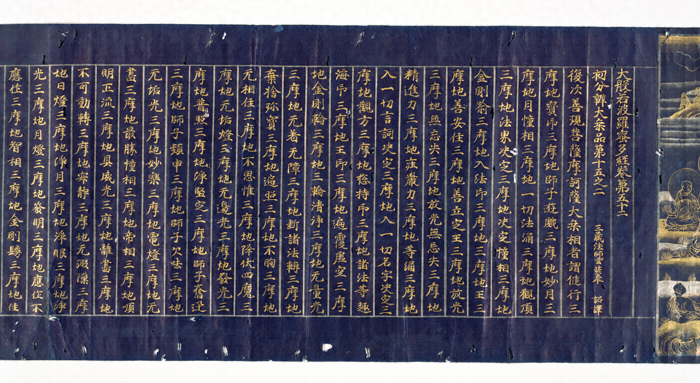 大般若波羅蜜多經卷第五十二
初分辨大乘品第十五之二 三藏法師玄奘奉 詔譯
復次善現菩薩摩訶薩大乘相者謂健行三
摩地寶印三摩地師子遊戲三摩地妙月三
摩地月幢相三摩地一切法涌三摩地觀頂
三摩地法界決定三摩地決定幢相三摩地
金剛喻三摩地入法印三摩地三摩地王三
摩地善安住三摩地善立定王三摩地放光
三摩地無忘失三摩地放光無忘失三摩地
精進力三摩地莊嚴力三摩地等涌三摩地
入一切言詞決定三摩地入一切名字決定三
摩地觀方三摩地總持印三摩地諸法等趣
海印三摩地王印三摩地遍覆虛空三摩
地金剛輪三摩地三輪清淨三摩地无量光
三摩地无著无障三摩地斷諸法轉三摩地
棄捨珍寶三摩地遍照三摩地不眴三摩地
无相住三摩地不思惟三摩地降伏四魔三
摩地无垢燈三摩地无邊光三摩地發光三
摩地普照三摩地淨堅定三摩地師子奮迅
三摩地師子頻申三摩地師子欠呿三摩地
无垢光三摩地妙樂三摩地電燈三摩地无
盡三摩地最勝幢相三摩地帝相三摩地順
明正流三摩地具威光三摩地離盡三摩地
不可動轉三摩地寂靜三摩地无瑕隙三摩
地日燈三摩地淨月三摩地淨眼三摩地淨
光三摩地月燈三摩地發明三摩地應作不
應作三摩地智相三摩地金剛鬘三摩地住